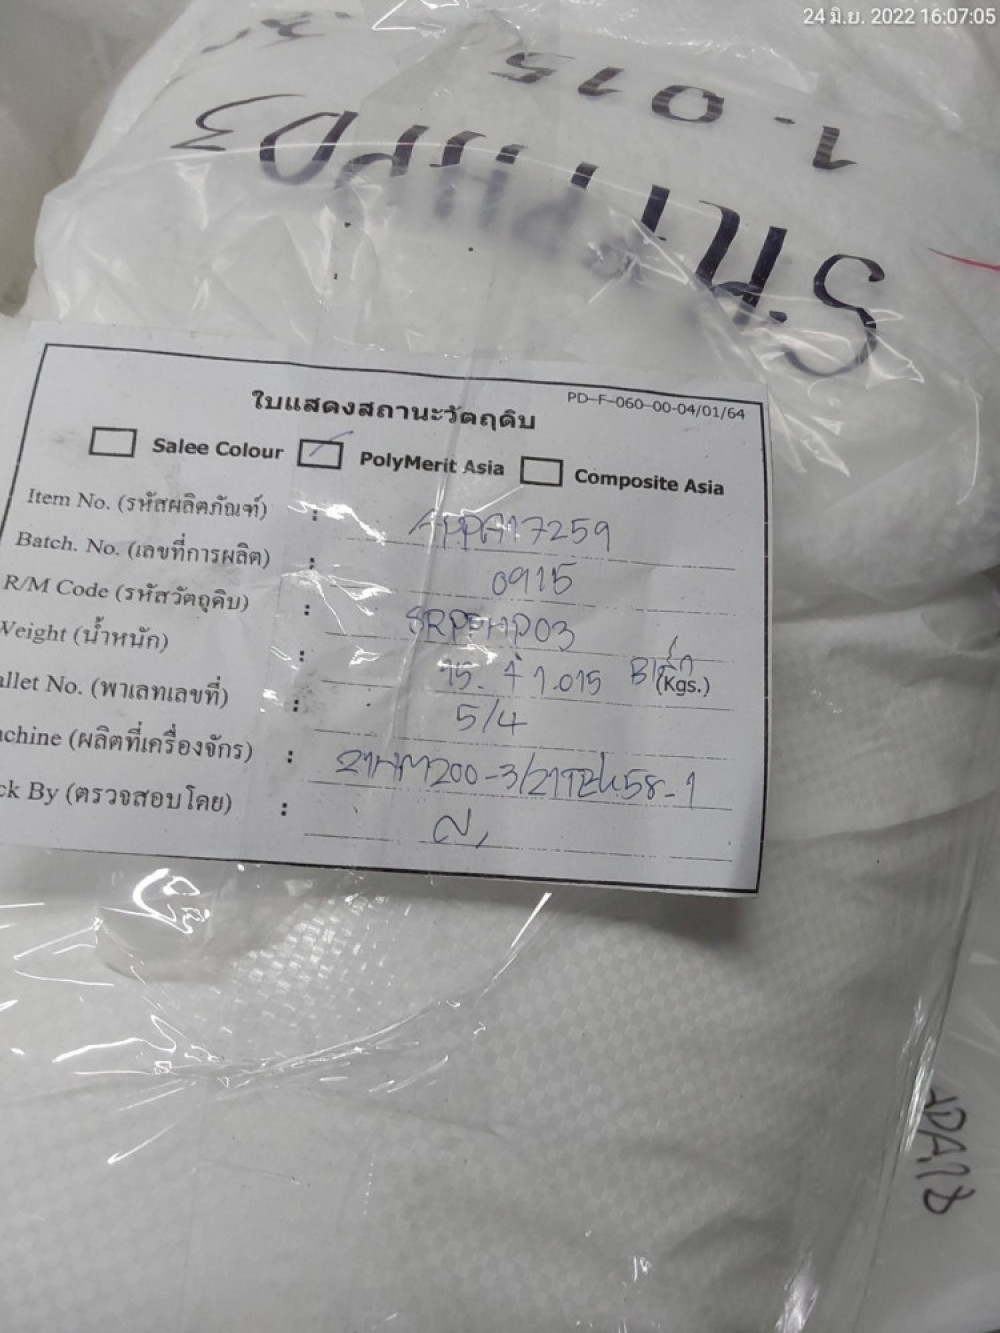 24 มิ.ย. 2022 16:07:05
1.015
PD-F-060-00-04/01/64
ใบแสดงสถานะวัตถุดิบ
Salee Colour PolyMerit Asia Composite Asia
Item No. (รหัสผลิตภัณฑ์) : APPA17259
Batch. No. (เลขที่การผลิต) : 0915
R/M Code (รหัสวัตถุดิบ) : SRPPHP03
Weight (น้ำหนัก) : 1.015 (Kgs.)
allet No. (พาเลทเลขที่) : 5/4
achine (ผลิตที่เครื่องจักร) : 21HM200-3/21TEK58-1
ck By (ตรวจสอบโดย) :